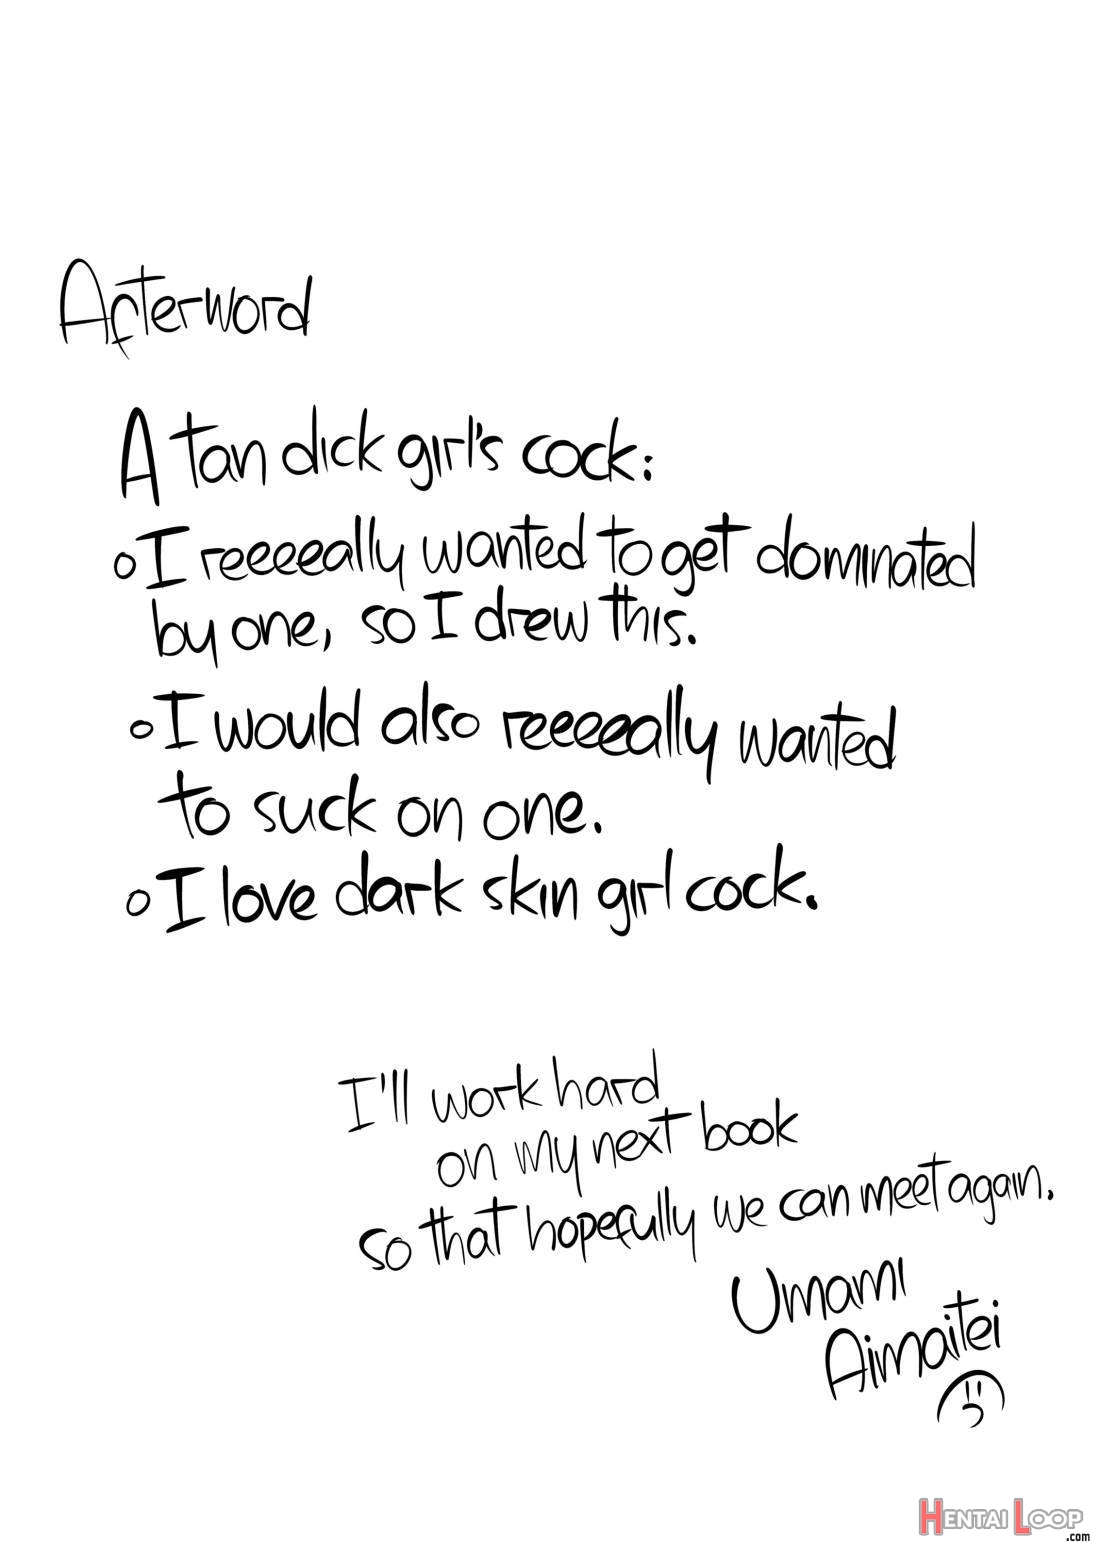 Afterword
A tan dick girl's cock:
I reeeeally wanted to get dominated
by one, so I drew this.
I would also reeeeeally wanted
to suck on one.
I love dark skin girl cock.
I'll work hard
on my next book
so that hopefully we can meet again.
Umami
Aimaitei
HENTAI LOOP
.com